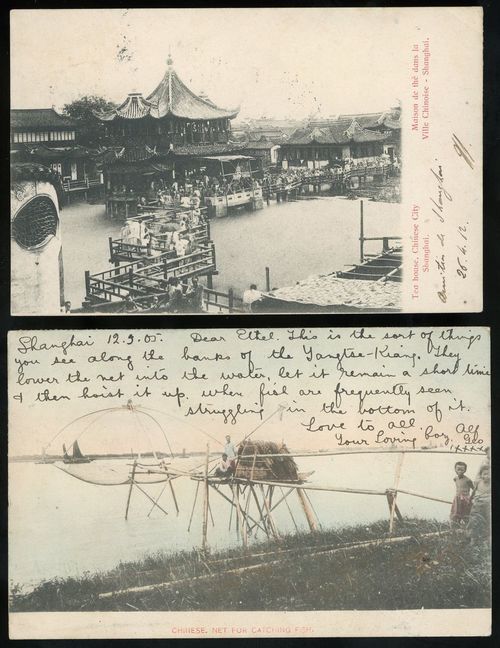 Maison de thé dans la
Ville Chinoise - Shanghaï.
Tea house, Chinese City
Shanghai.
de Shanghaï
26.4.12.
Shanghai 12.3.05. Dear Ethel. This is the sort of things
you see along the banks of the Yangtse-Kiang. They
lower the net into the water, let it remain a short time
& then hoist it up, when fish are frequently seen
struggling in the bottom of it.
Love to all.
Your Loving boy, Alf
xxxxx
CHINESE. NET FOR CATCHING FISH.